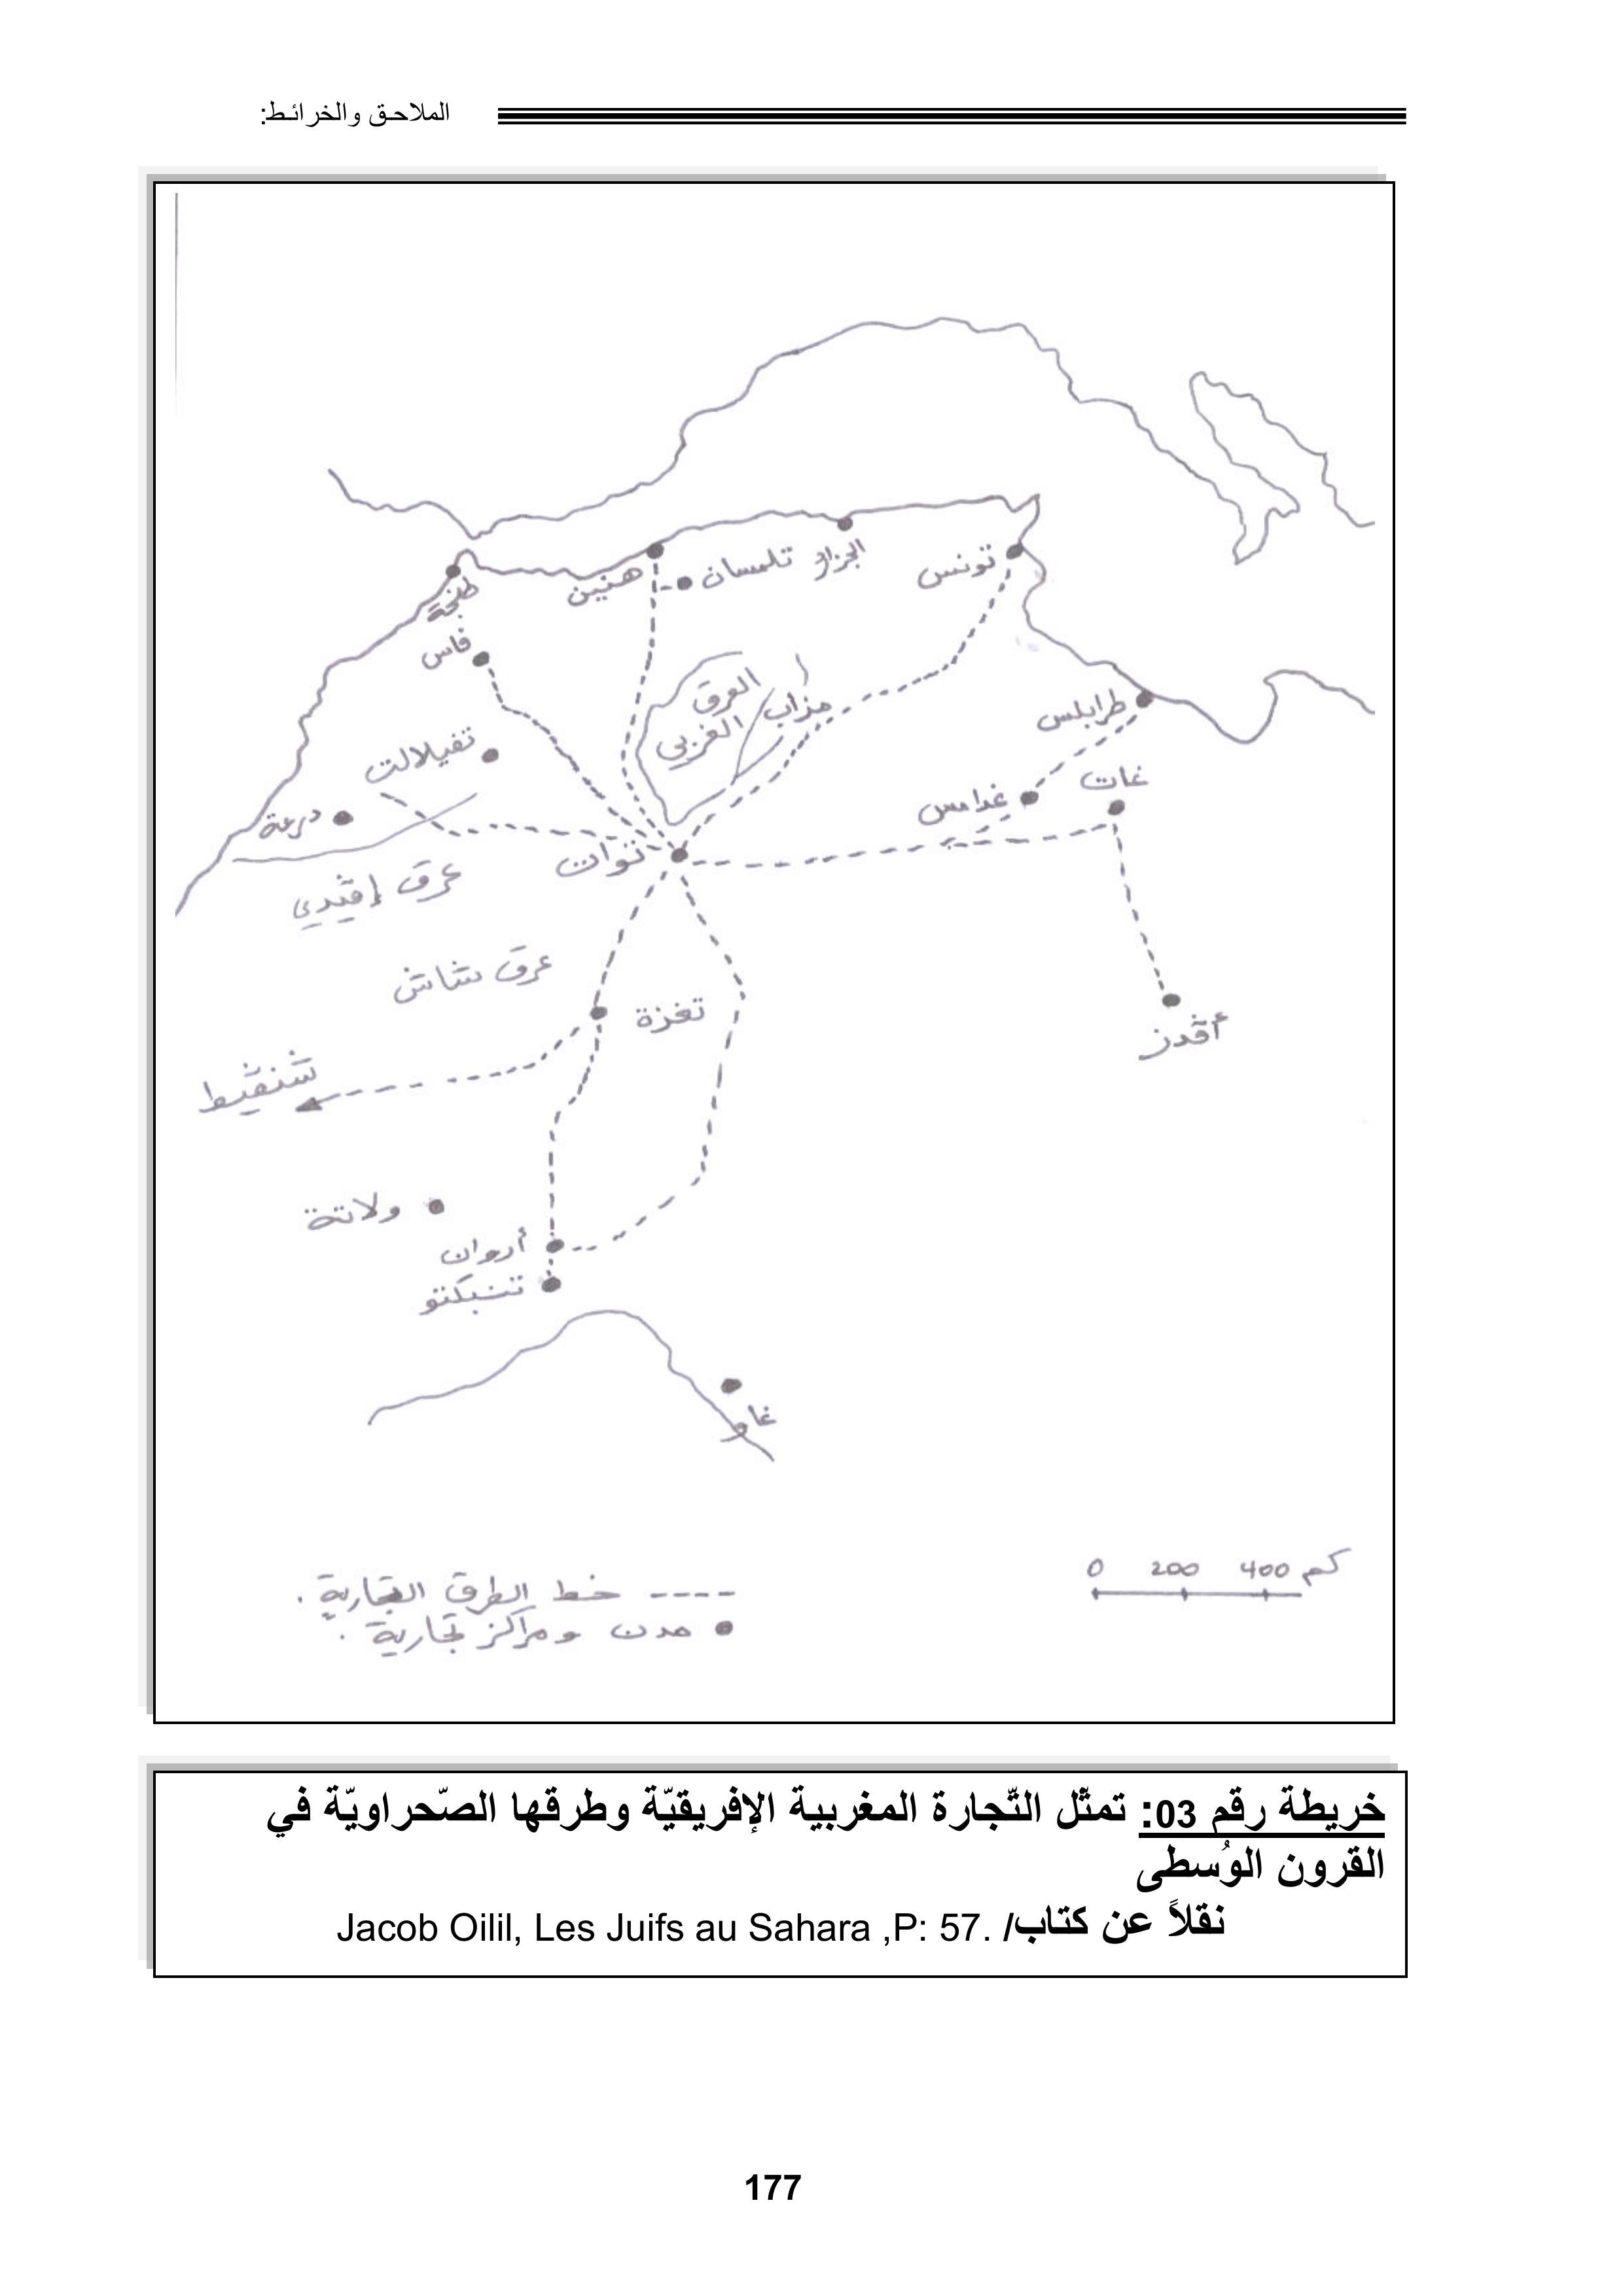 الملاحـق والخرائـط:
طنجة
هنين
تلمسان
الجزائر
تونس
فاس
العرق
الغربي
مزاب
طرابلس
تفيلالت
غدامس
غات
درعة
توات
عرق إڤيدي
عرق شاش
تغزة
أڤدز
شنڤيط
ولاتة
أروان
تنبكتو
غاو
0 200 400 كم
---- خط الطرق التجارية .
● مدن ومراكز تجارية .
خريطة رقم 03: تمثّل التّجارة المغربية الإفريقيّة وطرقها الصّحراويّة في
القرون الوُسطى
نقلاً عن كتاب/ Jacob Oilil, Les Juifs au Sahara ,P: 57.
177